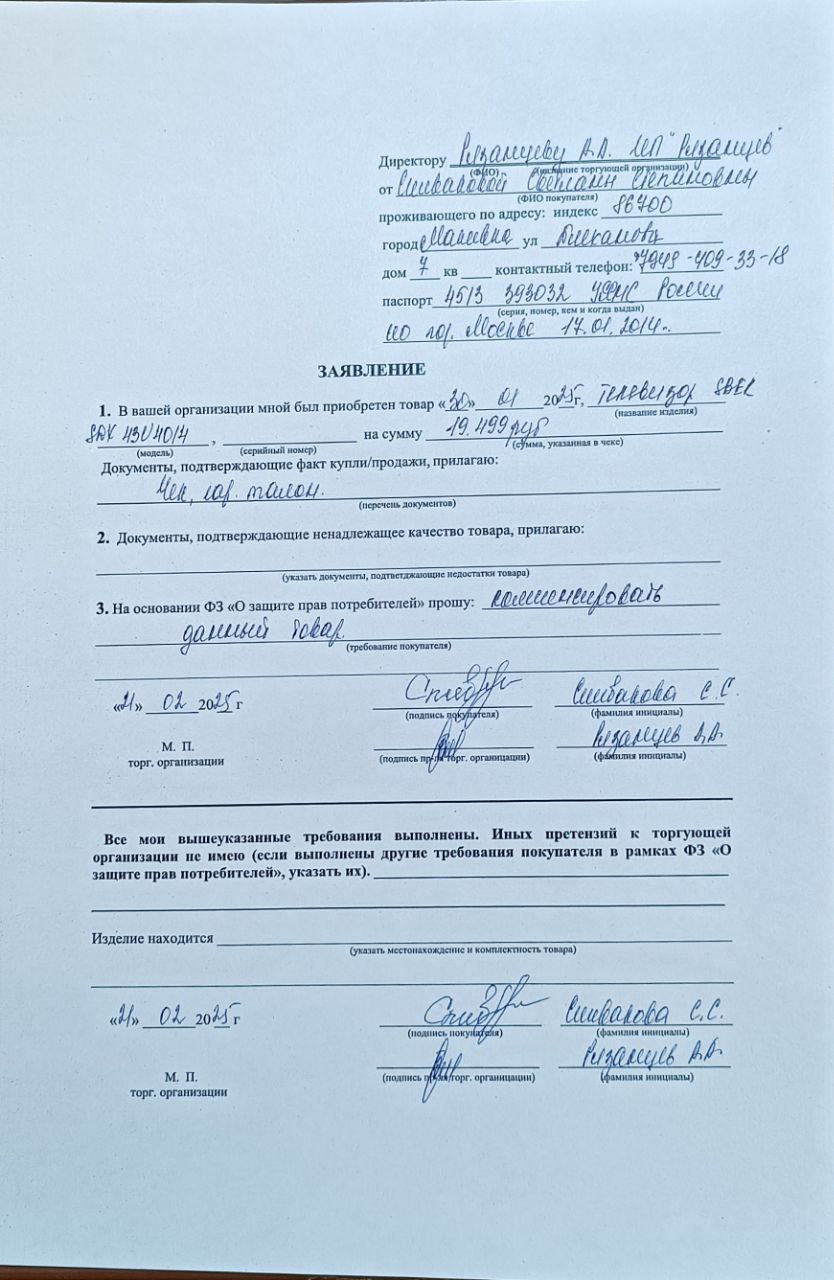 Директору Рязанцеву А.А. ИП "Рязанцев"
(ФИО) (название торгующей организации)
от Сливаковой Степановны
(ФИО покупателя)
проживающего по адресу: индекс 86700
город Макеевка ул
дом 7 кв ____ контактный телефон: +7949-409-33-18
паспорт 4513 393032 УФМС России
(серия, номер, кем и когда выдан)
по гор. Москве 17.01.2014г.
ЗАЯВЛЕНИЕ
1. В вашей организации мной был приобретен товар «30» 01 2025г, Телевизор SBER
(название изделия)
SDX 43U4014, ____ на сумму 19.499 руб
(модель) (серийный номер) (сумма, указанная в чеке)
Документы, подтверждающие факт купли/продажи, прилагаю:
Чек, гар. талон.
(перечень документов)
2. Документы, подтверждающие ненадлежащее качество товара, прилагаю:
(указать документы, подтветджающие недостатки товара)
3. На основании ФЗ «О защите прав потребителей» прошу:
данный товар
(требование покупателя)
«21» 02 2025 г С.С.
(подпись покупателя) (фамилия инициалы)
Рязанцев А.А.
М. П. (подпись пр-ля торг. органицации) (фамилия инициалы)
торг. организации
Все мои вышеуказанные требования выполнены. Иных претензий к торгующей
организации не имею (если выполнены другие требования покупателя в рамках ФЗ «О
защите прав потребителей», указать их).
Изделие находится
(указать местонахождение и комплектность товара)
«21» 02 2025 г С.С.
(подпись покупателя) (фамилия инициалы)
Рязанцев А.А.
М. П. (подпись пр-ля торг. органицации) (фамилия инициалы)
торг. организации